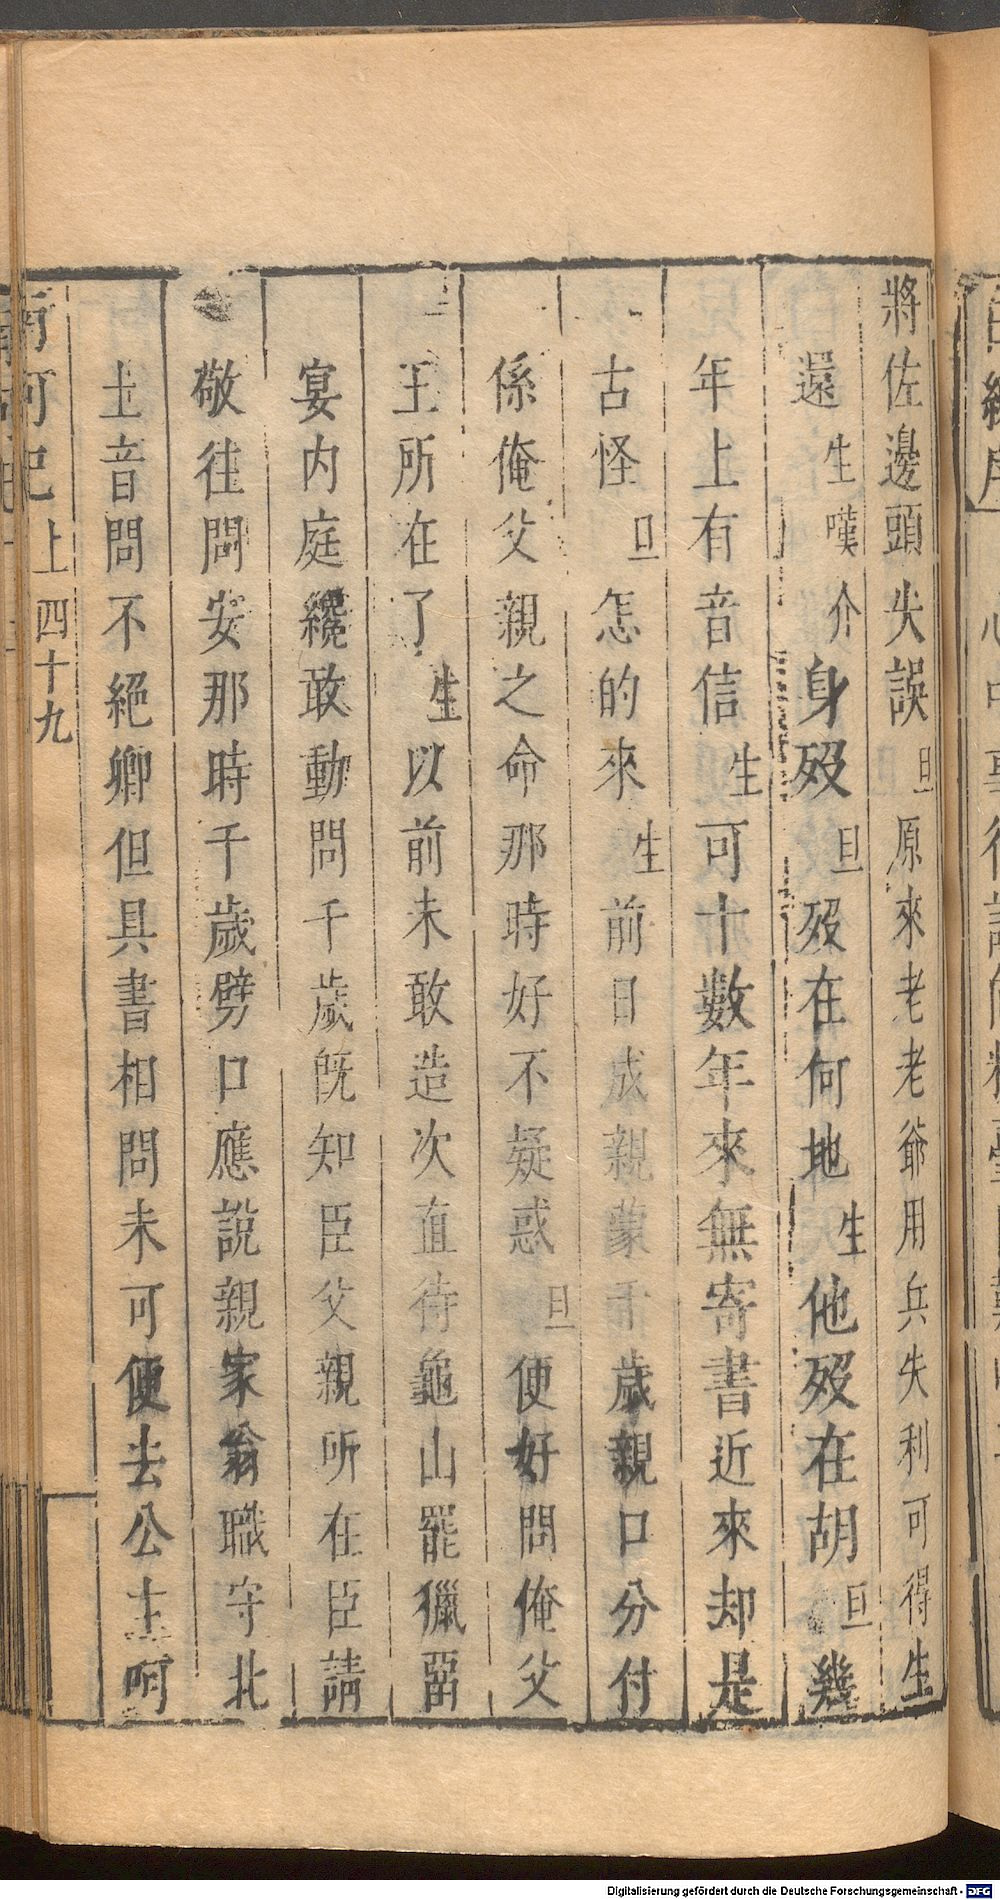 將佐邊頭失誤旦原來老老爺用兵失利可得生
還生嘆介身歿旦歿在何地生他歿在胡旦幾
年上有音信生可十數年來無寄書近來却是
古怪旦怎的來生前日成親蒙千歲親口分付
係俺父親之命那時好不疑惑旦便好問俺父
王所在了生以前未敢造次直待龜山罷獵留
宴内庭纔敢動問千歲既知臣父親所在臣請
敬往問安那時千歲劈口應說親家翁職守北
土音問不絕卿但具書相問未可便去公主呵
南柯記 上 四十九
Digitalisierung gefördert durch die Deutsche Forschungsgemeinschaft - DFG